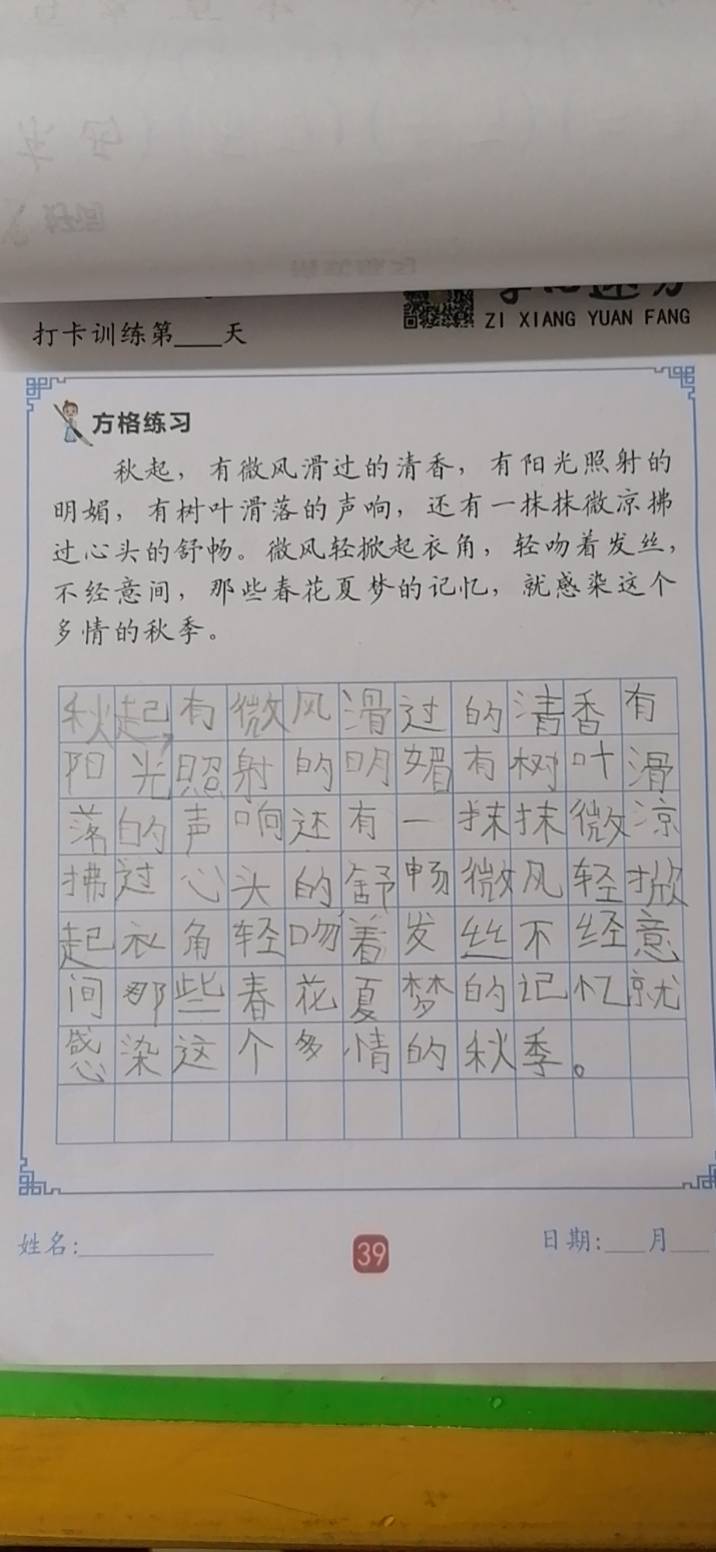 打卡训练第____天
ZI XIANG YUAN FANG
方格练习
秋起，有微风滑过的清香，有阳光照射的
明媚，有树叶滑落的声响，还有一抹抹微凉拂
过心头的舒畅。微风轻掀起衣角，轻吻着发丝，
不经意间，那些春花夏梦的记忆，就感染这个
多情的秋季。
秋起，有微风滑过的清香有
阳光照射的明媚有树叶滑
落的声响还有一抹抹微凉
拂过心头的舒畅微风轻掀
起衣角轻吻着发丝不经意
间那些春花夏梦的记忆就
感染这个多情的秋季。
姓名:
39
日期:____月____